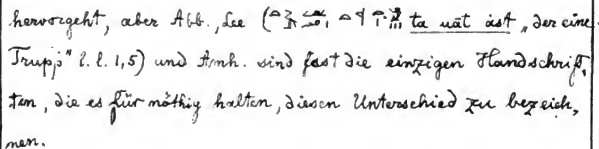 hervorgeht, aber Abb., Lee ( ta uāt ast „der eine
Trupp" l. l. 1,5) und Amh. sind fast die einzigen Handschrif,
ten, die es für nöthig halten, diesen Unterschied zu bezeich,
nen.